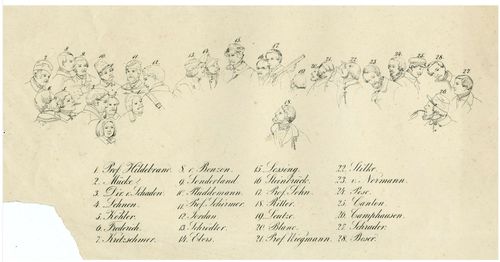 1. Prof. Hildebrand.
2. Mücke.
3. Dir. v. Schaden.
4. Lehnen.
5. Köhler.
6.
7. Kretzschmer.
8. v. Benzen.
9. Sonderland.
10. Plüddemann.
11. Prof. Schirmer.
12. Jordan.
13. Schrödter.
14. Ebers.
15. Lessing.
16. Steinbrück.
17. Prof. Sohn.
18. Ritter.
19. Leutze.
20. Blanc.
21. Prof. Wiegmann.
22. Stilke.
23. v. Normann.
24. Pose.
25. Canton.
26. Camphausen.
27. Schrader.
28. Boser.